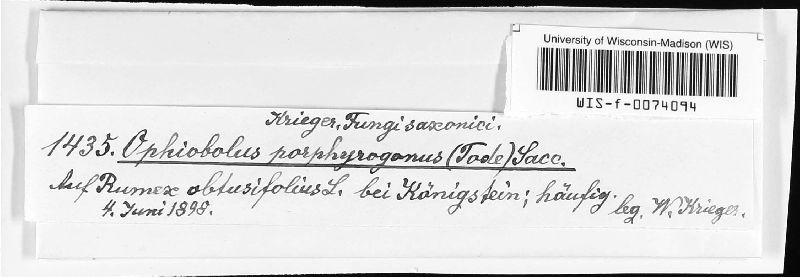 University of Wisconsin-Madison (WIS)
WIS-f-0074094
Krieger, Fungi saxonici.
1435. Ophiobolus porphyrogonus (Tode) Sacc.
Auf Rumex obtusifolius L. bei Königstein; häufig.
4. Juni 1898. leg. W. Krieger.